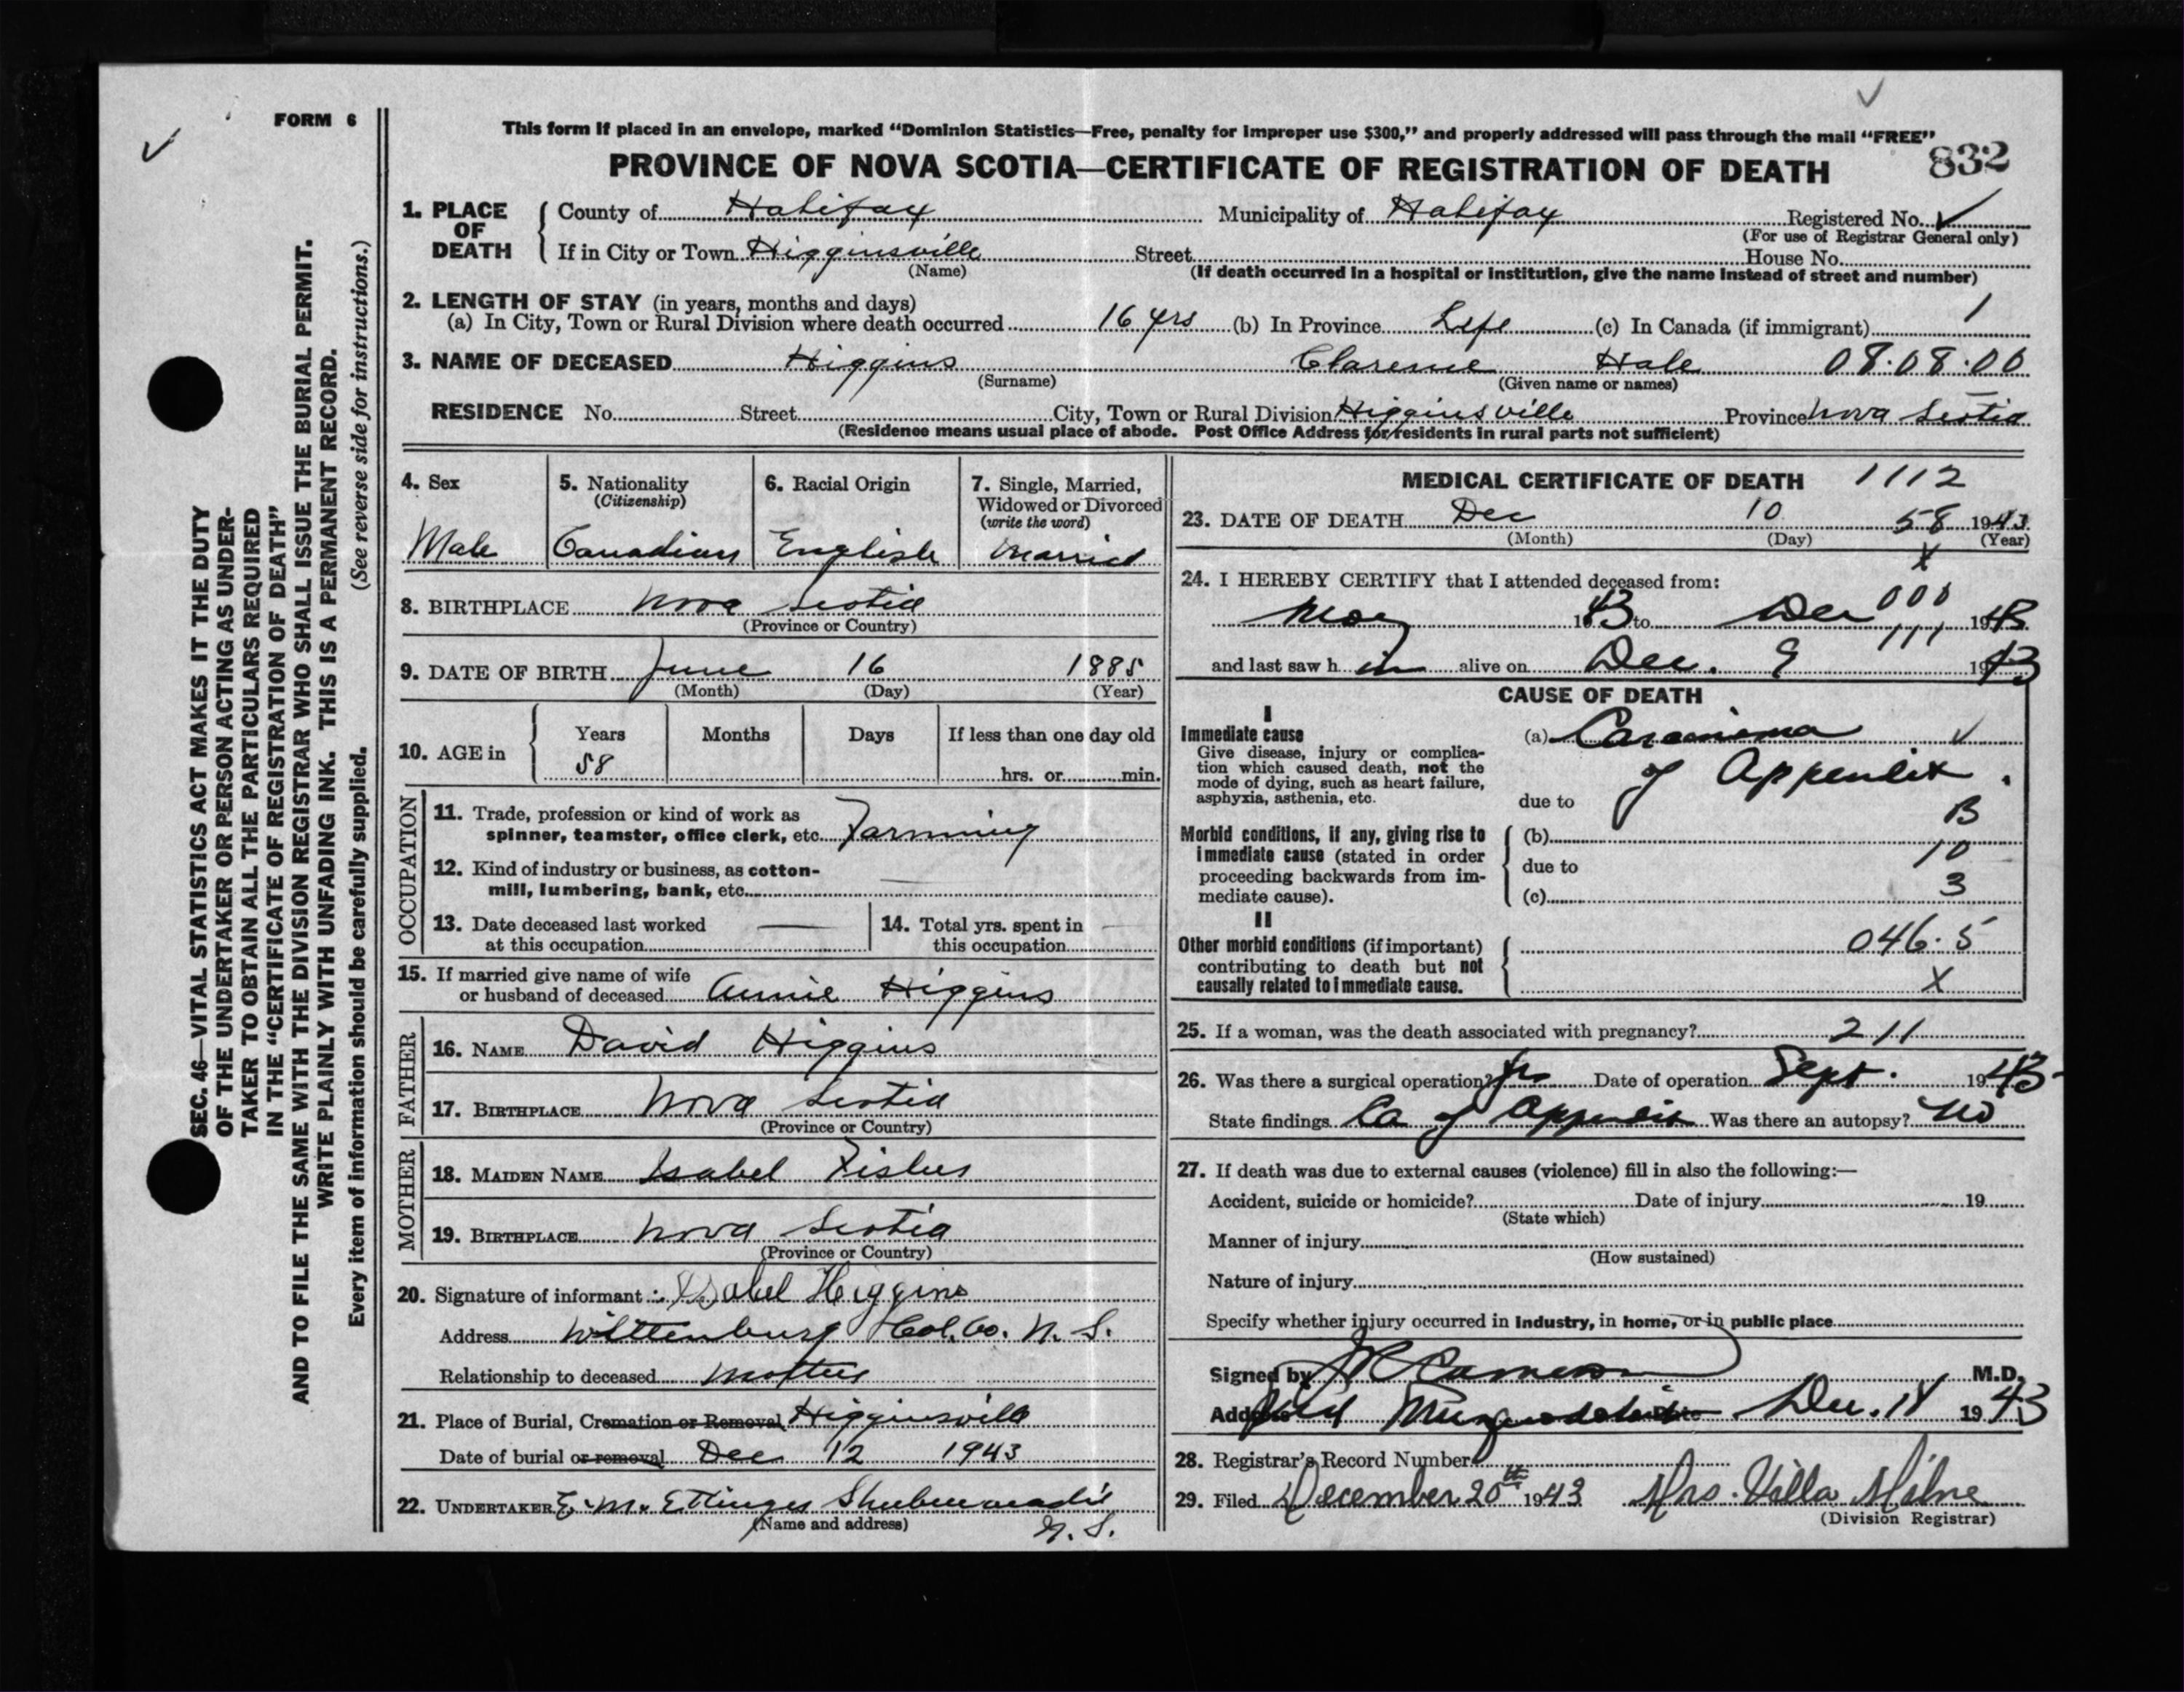 FORM 6
This form if placed in an envelope, marked "Dominion Statistics—Free, penalty for improper use $300," and properly addressed will pass through the mail "FREE"
PROVINCE OF NOVA SCOTIA—CERTIFICATE OF REGISTRATION OF DEATH 832
SEC. 46—VITAL STATISTICS ACT MAKES IT THE DUTY
OF THE UNDERTAKER OR PERSON ACTING AS UNDER-
TAKER TO OBTAIN ALL THE PARTICULARS REQUIRED
IN THE "CERTIFICATE OF REGISTRATION OF DEATH"
AND TO FILE THE SAME WITH THE DIVISION REGISTRAR WHO SHALL ISSUE THE BURIAL PERMIT.
WRITE PLAINLY WITH UNFADING INK. THIS IS A PERMANENT RECORD.
Every item of information should be carefully supplied. (See reverse side for instructions.)
1. PLACE OF DEATH
County of Halifax Municipality of Halifax Registered No.
(For use of Registrar General only)
If in City or Town Higginsville Street House No.
(Name) (If death occurred in a hospital or institution, give the name instead of street and number)
2. LENGTH OF STAY (in years, months and days)
(a) In City, Town or Rural Division where death occurred 16 yrs (b) In Province Life (c) In Canada (if immigrant) 1
3. NAME OF DECEASED Higgins Clarence Hale 08.08.00
(Surname) (Given name or names)
RESIDENCE No. Street City, Town or Rural Division Higginsville Province Nova Scotia
(Residence means usual place of abode. Post Office Address for residents in rural parts not sufficient)
4. Sex
Male
5. Nationality
(Citizenship)
Canadian
6. Racial Origin
English
7. Single, Married,
Widowed or Divorced
(write the word)
Married
8. BIRTHPLACE Nova Scotia
(Province or Country)
9. DATE OF BIRTH June 16 1885
(Month) (Day) (Year)
10. AGE in Years Months Days If less than one day old
58 hrs. or min.
OCCUPATION
11. Trade, profession or kind of work as
spinner, teamster, office clerk, etc. Farming
12. Kind of industry or business, as cotton-
mill, lumbering, bank, etc.
13. Date deceased last worked
at this occupation
14. Total yrs. spent in
this occupation
15. If married give name of wife
or husband of deceased Annie Higgins
FATHER
16. NAME David Higgins
17. BIRTHPLACE Nova Scotia
(Province or Country)
MOTHER
18. MAIDEN NAME Isabel Fisher
19. BIRTHPLACE Nova Scotia
(Province or Country)
20. Signature of informant: Isabel Higgins
Address Wittenburg Col. Co. N. S.
Relationship to deceased Mother
21. Place of Burial, Cremation or Removal Higginsville
Date of burial or removal Dec 12 1943
22. UNDERTAKER E. M. Ettinger Shubenacadie
(Name and address) N. S.
MEDICAL CERTIFICATE OF DEATH 1112
23. DATE OF DEATH Dec 10 58 1943
(Month) (Day) (Year)
X
24. I HEREBY CERTIFY that I attended deceased from:
000
43 to Dec 1943
111
and last saw h im alive on Dec. 9 1943
CAUSE OF DEATH
I
Immediate cause
Give disease, injury or complica-
tion which caused death, not the
mode of dying, such as heart failure,
asphyxia, asthenia, etc.
(a) Carcinoma
of Appendix.
due to
B
Morbid conditions, if any, giving rise to
immediate cause (stated in order
proceeding backwards from im-
mediate cause).
(b)
10
due to
3
(c)
II
Other morbid conditions (if important)
contributing to death but not
causally related to immediate cause.
046.5
X
25. If a woman, was the death associated with pregnancy? 211
26. Was there a surgical operation? Yes Date of operation Sept. 1943
State findings Ca of Appendix Was there an autopsy? No
27. If death was due to external causes (violence) fill in also the following:—
Accident, suicide or homicide? Date of injury 19
(State which)
Manner of injury
(How sustained)
Nature of injury
Specify whether injury occurred in industry, in home, or in public place
Signed by Cameron M.D.
Address Date Dec. 14 1943
28. Registrar's Record Number
29. Filed December 20th 1943 Mrs. Villa Milne
(Division Registrar)